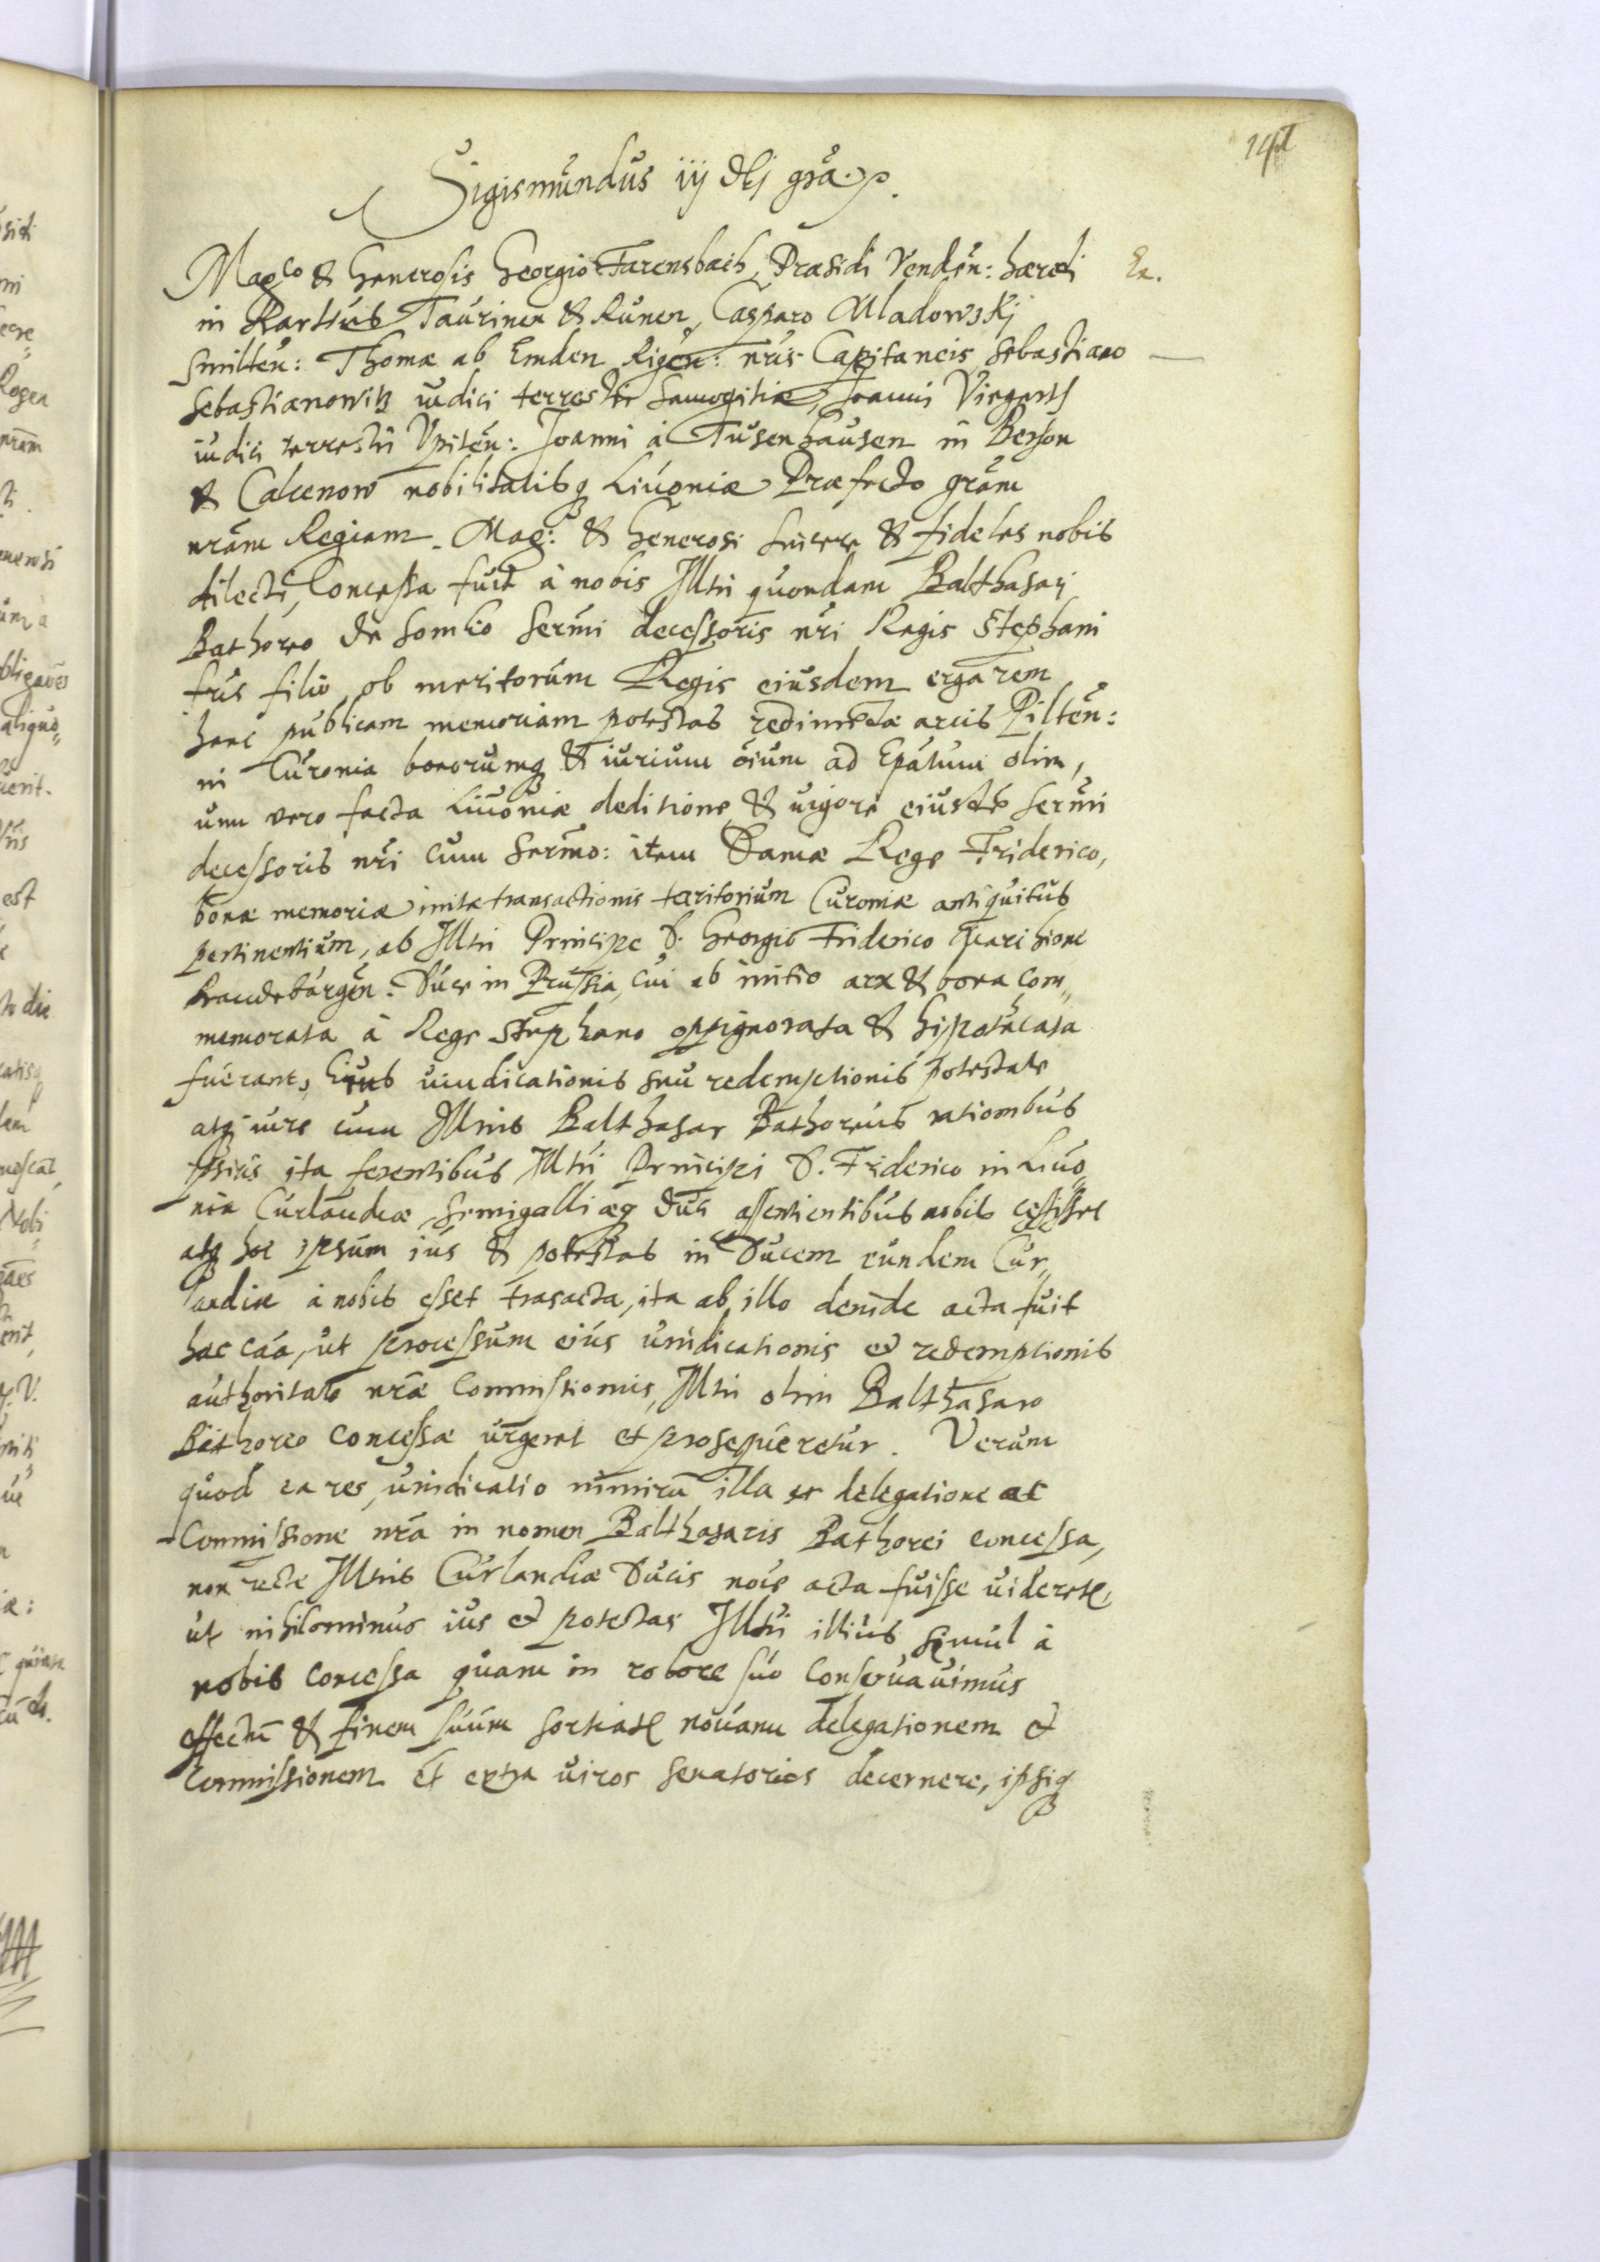 Sigismundus iij dei grã.
Mag.co & Generosis Georgio Farensbach, Præsidi Venden: hæredi
in Karkus Taurinen & Runen, Casparo Mladowski
Smilten: Thomæ ab Emden Rigen: nris Capitaneis, Sebastiano
Sebastianowitz iudici terrestri Samogitiæ, Joanni
iudici terrestri Upiten: Joanni à Tusenhausen in Berson
& Calcenow nobilitatisq Livoniæ Præfecto grãm
nrãm Regiam. Mag: & Generosi sincere & fideles nobis
dilecti, Concessa fuit à nobis Illtri quondam Balthasari
Bathoreo de Somlio Sermi decessoris nri Regis Stephani
fris filio, ob meritorum Regis eiusdem erga rem
hanc publicam memoriam potestas redimendæ arcis Pilten:
in Curonia bonorumq & iurium oium ad Epãtum olim,
unu vero facta Livoniæ deditione & vigore eiusdẽ Sermi
decessoris nri cum Sermo: item Daniæ Rege Friderico,
bonæ memoriæ initæ transactionis territorium Curoniæ antiquitus
pertinentium, ab Illtri Principe D. Georgio Friderico Marchione
Brandeburgen: Duce in Prussia, cui ab initio arx & bona com„
memorata à Rege Stephano oppignorata & hipothecata
fuerant, Cuius vindicationis seu redemptionis potestate
atq iure cum Illtris Balthasar Bathoreus rationibus
ipsius ita ferentibus Illtri Principi D. Friderico in Livo„
nia Curlandiæ, Semigalliæq duci assentientibus nobis cessisset
atq hoc ipsum ius & potestas in Ducem eundem Cur„
landiæ à nobis esset trasacta, ita ab illo deinde acta fuit
hac caã, ut processum eius vindicationis et redemptionis
authoritate nræ Commissionis, Illtri olim Balthasaro
Bathoreo concessæ urgeret et prosequeretur. Verum
quod ea res, vindicatio nimirũ illa ex delegatione ac
Commissione nrã in nomen Balthasaris Bathorei concessa,
non recte Illtris Curlandiæ Ducis noie acta fuisse videretr,
ut nihilominus ius et potestas Illtri illius simul à
nobis concessa quam in robore suo conservavimus
effectũ & finem suum sortiatr novam delegationem et
Commissionem et extra viros senatorios decernere, ipsiq